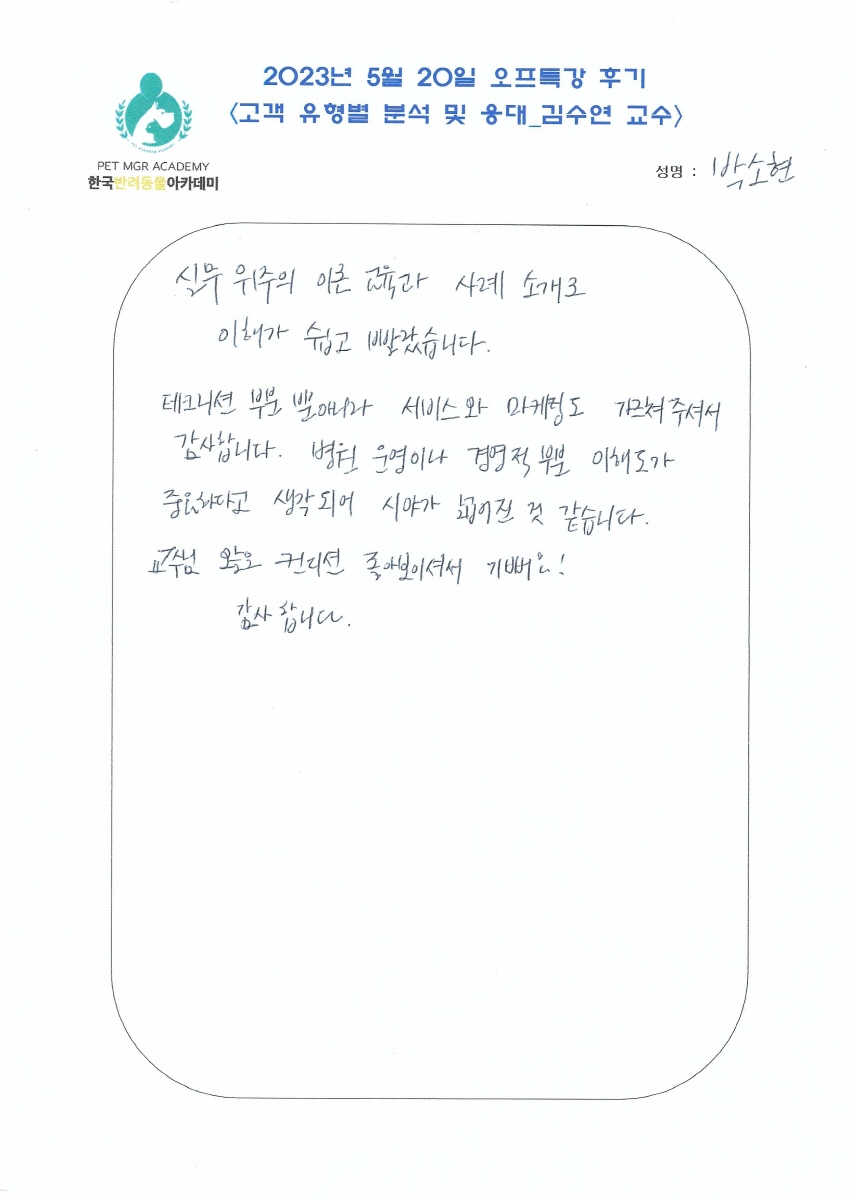 2023년 5월 20일 오프특강 후기
<고객 유형별 분석 및 응대_김수연 교수>
PET MGR ACADEMY
한국반려동물아카데미
성명 : 박소현
실무 위주의 이론 교육과 사례 소개로
이해가 쉽고 빨랐습니다.
테크니션 부분 뿐아니라 서비스와 마케팅도 가르쳐주셔서
감사합니다. 병원 운영이나 경영적 부분 이해도가
중요하다고 생각되어 시야가 넓어진 것 같습니다.
교수님 오늘 컨디션 좋아보이셔서 기뻐요!
감사합니다.